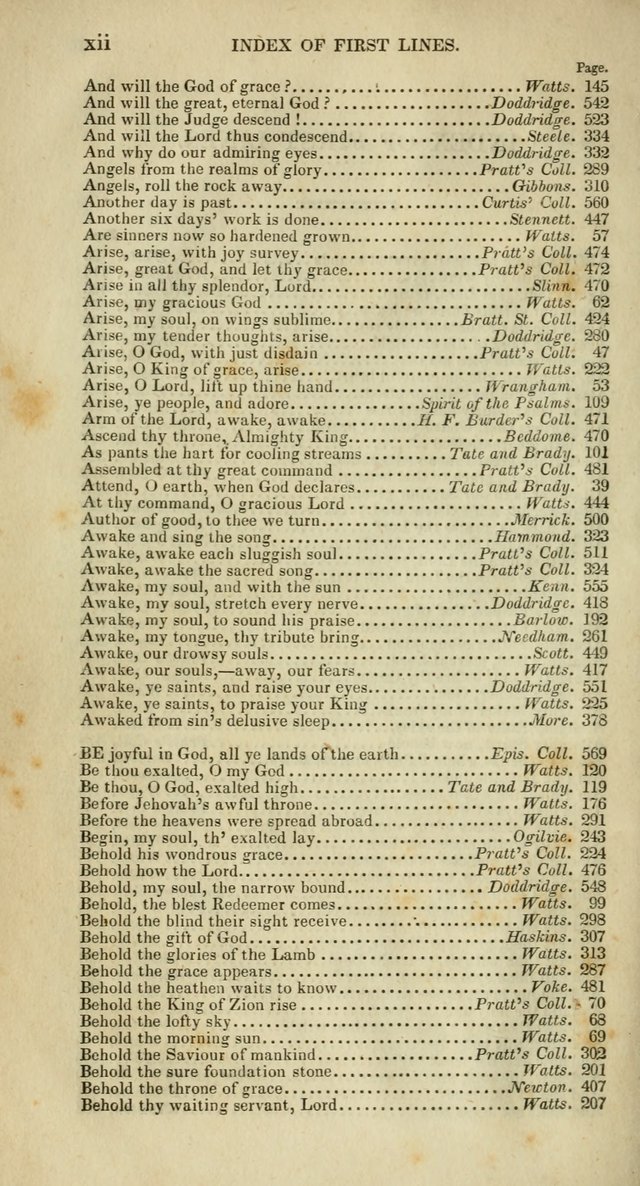 xii INDEX OF FIRST LINES.
Page.
And will the God of grace?.......... Watts. 145
And will the great, eternal God?.......... Doddridge. 542
And will the Judge descend!.......... Doddridge. 523
And will the Lord thus condescend.......... Steele. 334
And why do our admiring eyes.......... Doddridge. 332
Angels from the realms of glory.......... Pratt's Coll. 289
Angels, roll the rock away.......... Gibbons. 310
Another day is past.......... Curtis' Coll. 560
Another six days' work is done.......... Stennett. 447
Are sinners now so hardened grown.......... Watts. 57
Arise, arise, with joy survey.......... Pratt's Coll. 474
Arise, great God, and let thy grace.......... Pratt's Coll. 472
Arise in all thy splendor, Lord.......... Slinn. 470
Arise, my gracious God.......... Watts. 62
Arise, my soul, on wings sublime.......... Bratt. St. Coll. 424
Arise, my tender thoughts, arise.......... Doddridge. 280
Arise, O God, with just disdain.......... Pratt's Coll. 47
Arise, O King of grace, arise.......... Watts. 222
Arise, O Lord, lift up thine hand.......... Wrangham. 53
Arise, ye people, and adore.......... Spirit of the Psalms. 109
Arm of the Lord, awake, awake.......... H. F. Burder's Coll. 471
Ascend thy throne, Almighty King.......... Beddome. 470
As pants the hart for cooling streams.......... Tate and Brady. 101
Assembled at thy great command.......... Pratt's Coll. 481
Attend, O earth, when God declares.......... Tate and Brady. 39
At thy command, O gracious Lord.......... Watts. 444
Author of good, to thee we turn.......... Merrick. 500
Awake and sing the song.......... Hammond. 323
Awake, awake each sluggish soul.......... Pratt's Coll. 511
Awake, awake the sacred song.......... Pratt's Coll. 324
Awake, my soul, and with the sun.......... Kenn. 555
Awake, my soul, stretch every nerve.......... Doddridge. 418
Awake, my soul, to sound his praise.......... Barlow. 192
Awake, my tongue, thy tribute bring.......... Needham. 261
Awake, our drowsy souls.......... Scott. 449
Awake, our souls,—away, our fears.......... Watts. 417
Awake, ye saints, and raise your eyes.......... Doddridge. 551
Awake, ye saints, to praise your King.......... Watts. 225
Awaked from sin's delusive sleep.......... More. 378
BE joyful in God, all ye lands of the earth.......... Epis. Coll. 569
Be thou exalted, O my God.......... Watts. 120
Be thou, O God, exalted high.......... Tate and Brady. 119
Before Jehovah's awful throne.......... Watts. 176
Before the heavens were spread abroad.......... Watts. 291
Begin, my soul, th' exalted lay.......... Ogilvie. 243
Behold his wondrous grace.......... Pratt's Coll. 224
Behold how the Lord.......... Pratt's Coll. 476
Behold, my soul, the narrow bound.......... Doddridge. 548
Behold, the blest Redeemer comes.......... Watts. 99
Behold the blind their sight receive.......... Watts. 298
Behold the gift of God.......... Haskins. 307
Behold the glories of the Lamb.......... Watts. 313
Behold the grace appears.......... Watts. 287
Behold the heathen waits to know.......... Voke. 481
Behold the King of Zion rise.......... Pratt's Coll. 70
Behold the lofty sky.......... Watts. 68
Behold the morning sun.......... Watts. 69
Behold the Saviour of mankind.......... Pratt's Coll. 302
Behold the sure foundation stone.......... Watts. 201
Behold the throne of grace.......... Newton. 407
Behold thy waiting servant, Lord.......... Watts. 207